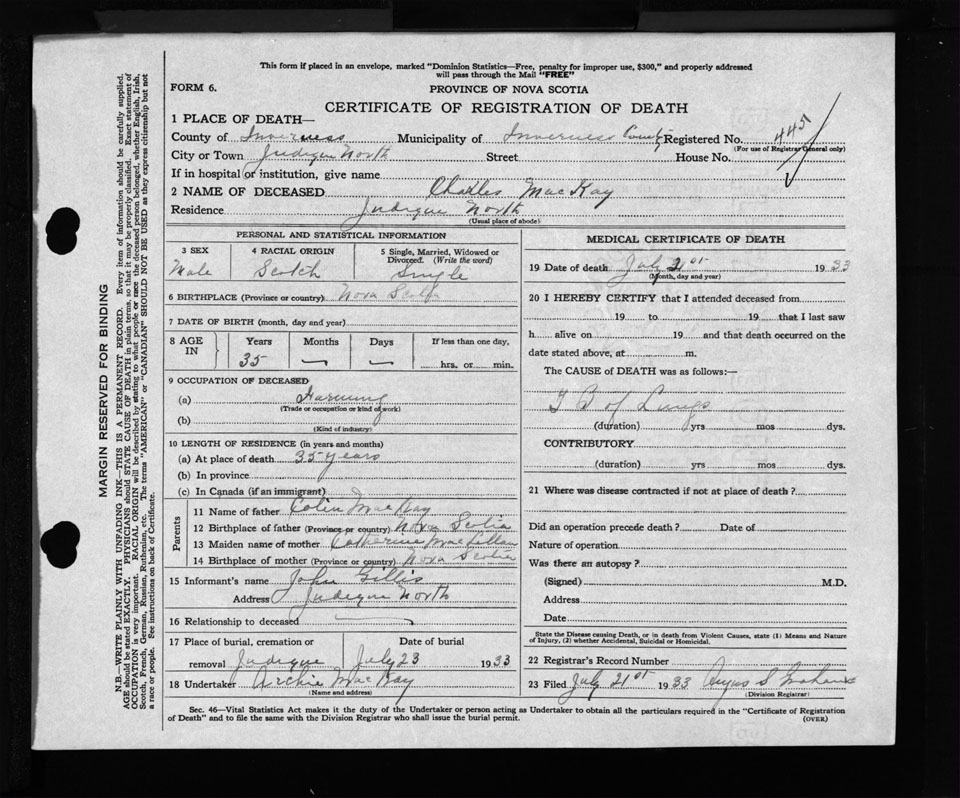 This form if placed in an envelope, marked "Dominion Statistics—Free, penalty for improper use, $300," and properly addressed
will pass through the Mail "FREE"
FORM 6. PROVINCE OF NOVA SCOTIA
CERTIFICATE OF REGISTRATION OF DEATH
1 PLACE OF DEATH—
County of Inverness Municipality of Inverness County Registered No. 445
(For use of Registrar General only)
City or Town Judique North Street House No.
If in hospital or institution, give name
2 NAME OF DECEASED Charles MacKay
Residence Judique North
(Usual place of abode)
PERSONAL AND STATISTICAL INFORMATION
3 SEX 4 RACIAL ORIGIN 5 Single, Married, Widowed or
Divorced. (Write the word)
Male Scotch Single
6 BIRTHPLACE (Province or country) Nova Scotia
7 DATE OF BIRTH (month, day and year)
8 AGE IN Years Months Days If less than one day,
35 — — hrs. or min.
9 OCCUPATION OF DECEASED
(a) Farming
(Trade or occupation or kind of work)
(b)
(Kind of industry)
10 LENGTH OF RESIDENCE (in years and months)
(a) At place of death 35 years
(b) In province
(c) In Canada (if an immigrant)
Parents
11 Name of father Colin MacKay
12 Birthplace of father (Province or country) Nova Scotia
13 Maiden name of mother Catherine MacLellan
14 Birthplace of mother (Province or country) Nova Scotia
15 Informant's name John Gillis
Address Judique North
16 Relationship to deceased
17 Place of burial, cremation or Date of burial
removal Judique July 23 1933
18 Undertaker Archie MacKay
(Name and address)
MEDICAL CERTIFICATE OF DEATH
19 Date of death July 21st 1933
(Month, day and year)
20 I HEREBY CERTIFY that I attended deceased from
19 to 19 that I last saw
h alive on 19 and that death occurred on the
date stated above, at m.
The CAUSE of DEATH was as follows:—
T B of Lungs
(duration) yrs mos dys.
CONTRIBUTORY
(duration) yrs mos dys.
21 Where was disease contracted if not at place of death?
Did an operation precede death? Date of
Nature of operation
Was there an autopsy?
(Signed) M.D.
Address
Date
State the Disease causing Death, or in death from Violent Causes, state (1) Means and Nature
of Injury, (2) whether Accidental, Suicidal or Homicidal.
22 Registrar's Record Number
23 Filed July 21st 1933 Angus S
(Division Registrar)
Sec. 46—Vital Statistics Act makes it the duty of the Undertaker or person acting as Undertaker to obtain all the particulars required in the "Certificate of Registration
of Death" and to file the same with the Division Registrar who shall issue the burial permit. (OVER)
MARGIN RESERVED FOR BINDING
N.B.—WRITE PLAINLY WITH UNFADING INK—THIS IS A PERMANENT RECORD. Every item of information should be carefully supplied.
AGE should be stated EXACTLY. PHYSICIANS should STATE CAUSE OF DEATH in plain terms, so that it may be properly classified. Exact statement of
OCCUPATION is very important. RACIAL ORIGIN will be described by stating to what people or race the deceased person belonged, whether English, Irish,
Scotch, French, German, Russian, Ruthenian, etc. The terms "AMERICAN" or "CANADIAN" SHOULD NOT BE USED as they express citizenship but not
a race or people. See instructions on back of Certificate.